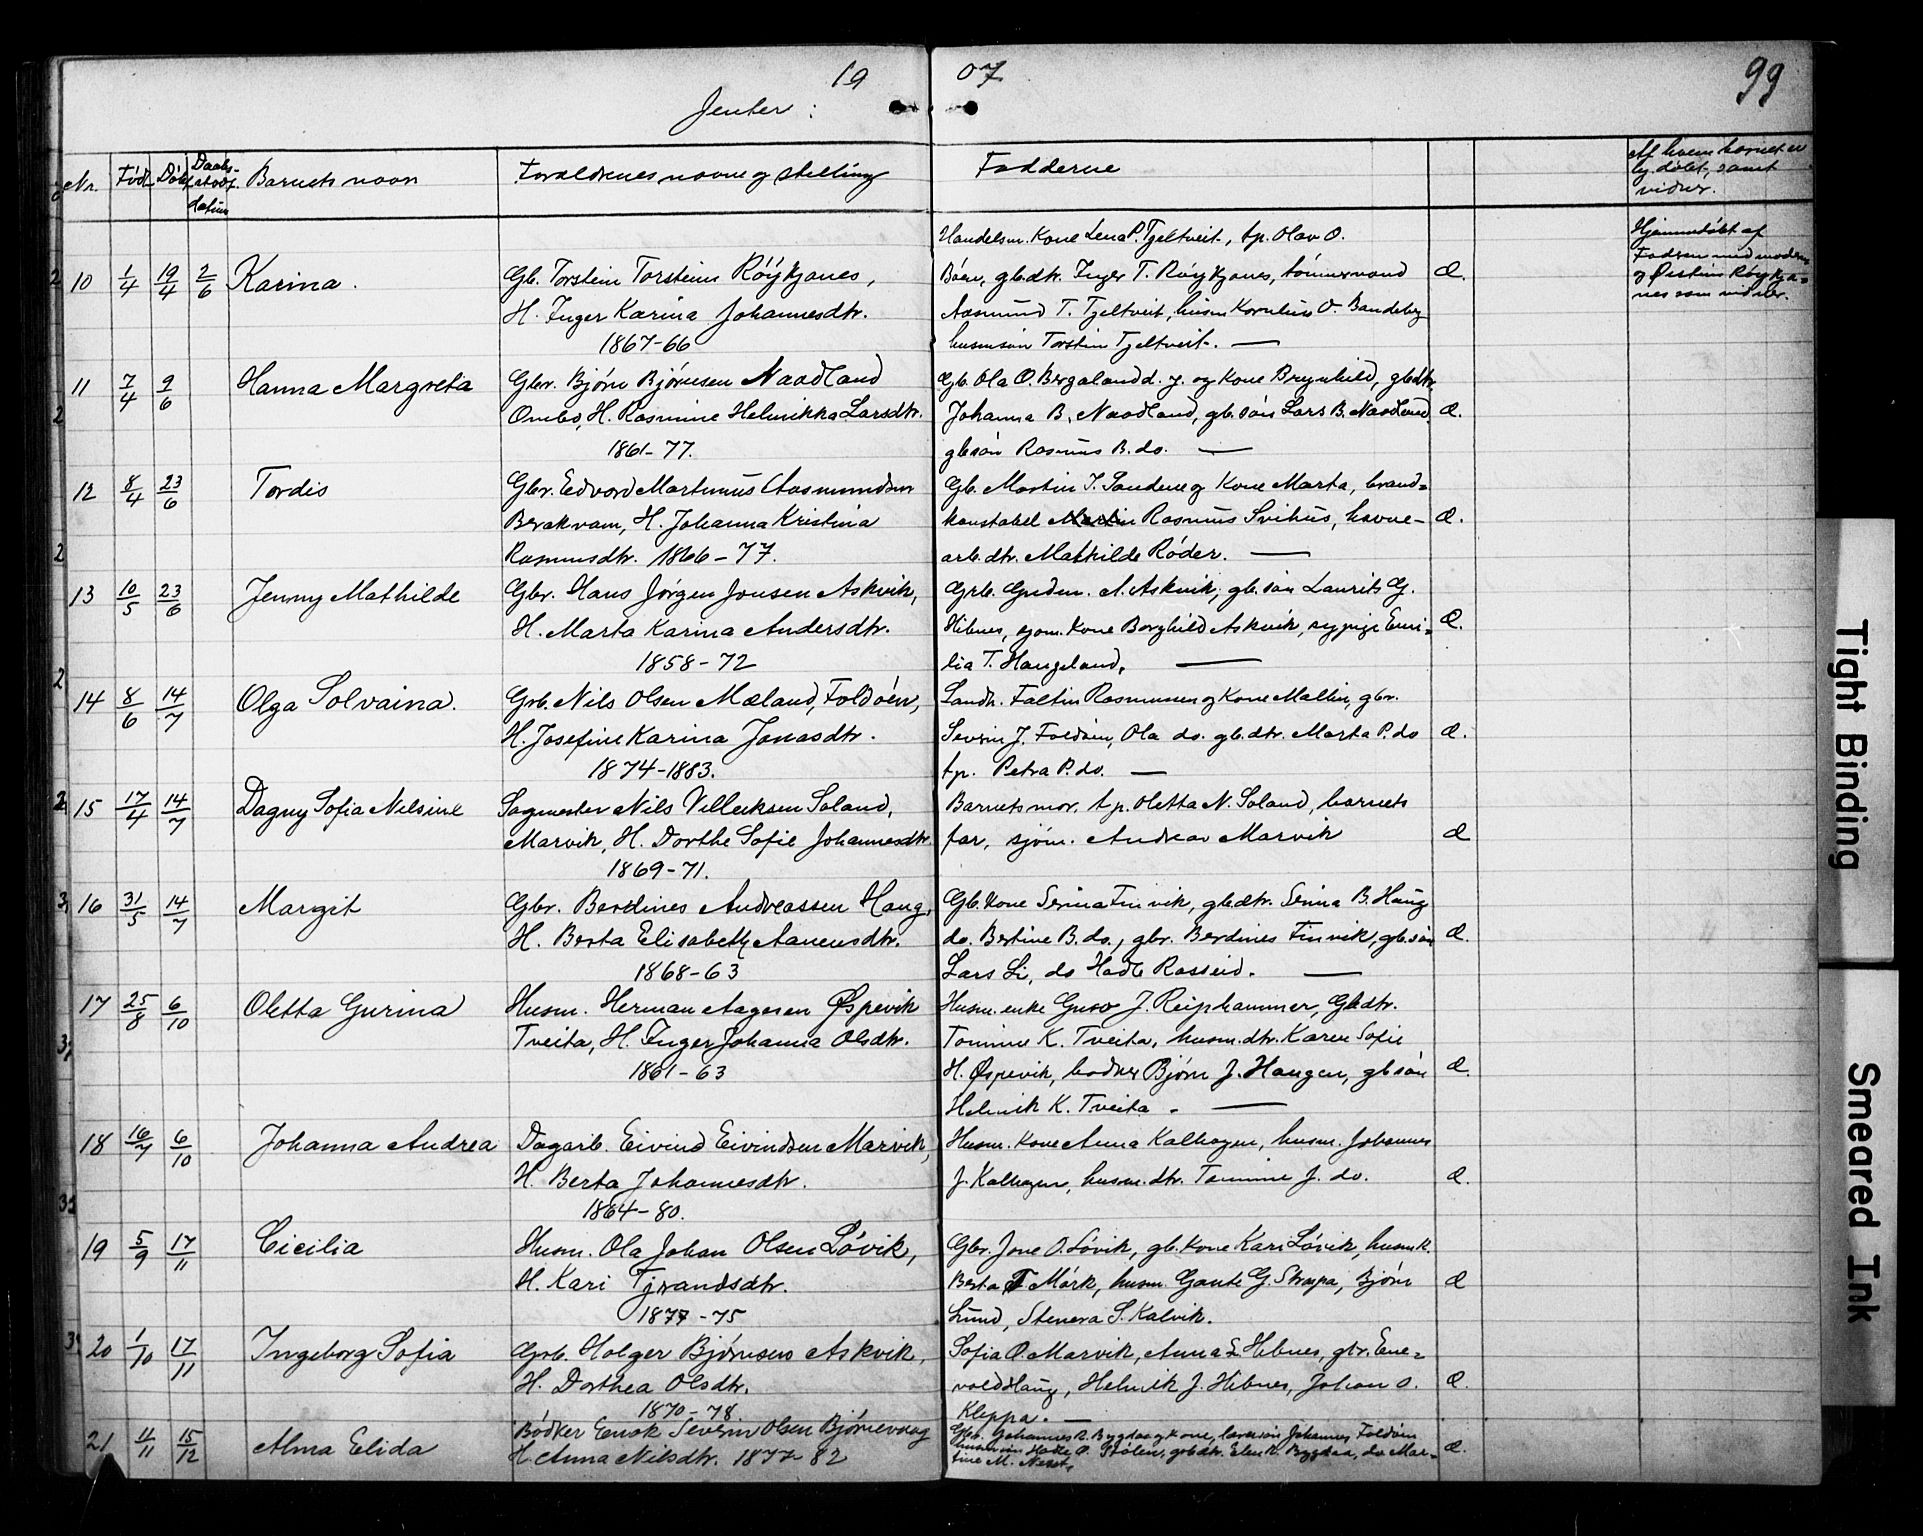 19 07
99
Jenter :
Nr. Född Döbt Daabsstadf. datum Barnets navn Foraldrenes navne og stilling Fadderne Af hvem barnet er hj.döbt, samt vidner.
10 1/4 19/4 2/6 Karina. Gb. Torstein Torsteins Röykjanes, H. Inger Karina Johannesdtr. 1867-66
Handelsm. Kone Lena P. Tjeltveit, tp. Olav O.
Böen, gb.dtr. Inger T. Röykjanes, tömmermand d.
Aasmund T. Tjeltveit, husm Kornelius O. Bandeberg
husmsön Torstin Tjeltveit. —
Hjemmedöbt af
Fadren med modren
og Östin Röykja=
nes som vidner.
11 7/4 9/6 Hanna Margreta Gbr. Björn Björnsen Naadland
Ombo, H. Rasmine Helmikka Larsdtr.
1861-77.
Gb. Ola O. Bergaland d. y. og Kone Brynhild, gbdtr.
Johanna B. Naadland, gb.sön Lars B. Naadland d.
gbsön Rasmus B. do. —
12 8/4 23/6 Tordis Gbr. Edvard Martinus Aasmundsen
Berakvam, H. Johanna Kristina
Rasmusdtr. 1866-77.
Gb. Martin T. Sandene og Kone Marta, brand=
konstabel Rasmus Svihus, havne- d.
arb.dtr. Mathilde Röder. —
13 10/5 23/6 Jenny Mathilde Gbr. Hans Jörgen Jonsen Askvik,
H. Marta Karina Andersdtr.
1858-72
Grb. Gudm. A. Askvik, gb.sön Laurits G.
Hibnes, sjöm. Kone Borghild Askvik, sypige Emi= d.
lia T. Haugeland. —
14 8/6 14/7 Olga Solvaina. Grb. Nils Olsen Mæland, Foldöen,
H. Josefine Karina Jonasdtr.
1874-1883.
Landh. Faltin Rasmussen og Kone Mallin, gbr.
Severin J. Foldöen, Ola do. gb.dtr. Marta P. do d.
tp. Petra P. do. —
15 17/4 14/7 Dagny Sofia Nilsine Sagmester Nils Villecksen Soland,
Marvik, H. Dorthe Sofie Johannesdtr.
1869-71.
Barnets mor. tp. Oletta N. Soland, barnets
far, sjöm. Andreas Marvik d
16 31/5 14/7 Margit Gbr. Berdines Andreassen Haug,
H. Berta Elisabeth Aanensdtr.
1868-63
Gb. Kone Serina Finvik, gb.dtr. Serina B. Haug
do. Bertine B. do., gbr. Berdines Finvik, gb.sön d.
Lars Li, do Hadle Rosseid. —
17 25/8 6/10 Oletta Gurina Husm. Herman Aagesen Øspevik
Tveita, H. Inger Johanna Olsdtr.
1861-63
Husm. enke Guro J. Reiphammer, Gbdtr.
Tomine K. Tveita, husm.dtr. Karen Sofie
H. Øspevik, bödker Björn J. Haugen, gbsön d.
Helmik K. Tveita. —
18 16/7 6/10 Johanna Andrea Dagarb. Eivind Eivindsen Marvik,
H. Berta Johannesdtr.
1864-80.
Husm. Kone Anna Kalhagen, husm. Johannes
J. Kalhagen, husm.dtr. Tomine J. do. d.
19 5/9 17/11 Cicilia Husm. Ola Johan Olsen Lövik,
H. Kari Tjerandsdtr.
1877-75
Gbr. Jone O. Lövik, gb. Kone Kari Lövik, husm K.
Berta T Mörk, husm. Gaute G. Strapa, Björn d
Lund, Stenera S. Kalvik.
20 1/10 17/11 Ingeborg Sofia Grb. Holger Björnsen Askvik,
H. Dorthea Olsdtr.
1870-78.
Sofia O. Marvik, Anna L. Hebnes, gbr. Ene=
vold Haug, Helmik J. Hibnes, Johan O. d.
Kleppa. —
21 11/11 15/12 Alma Elida Bödker Enok Severin Olsen Björnevaag
H. Anna Nilsdtr. 1877-82
Gbr. Johannes R. Bygdaa og Kone, lærersön Johannes Foldöen
husmsön Hadle O. Stölen, gbdtr. Elen R. Bygdaa, do Mar= d.
tine M. Neset.
Tight Binding
Smeared Ink